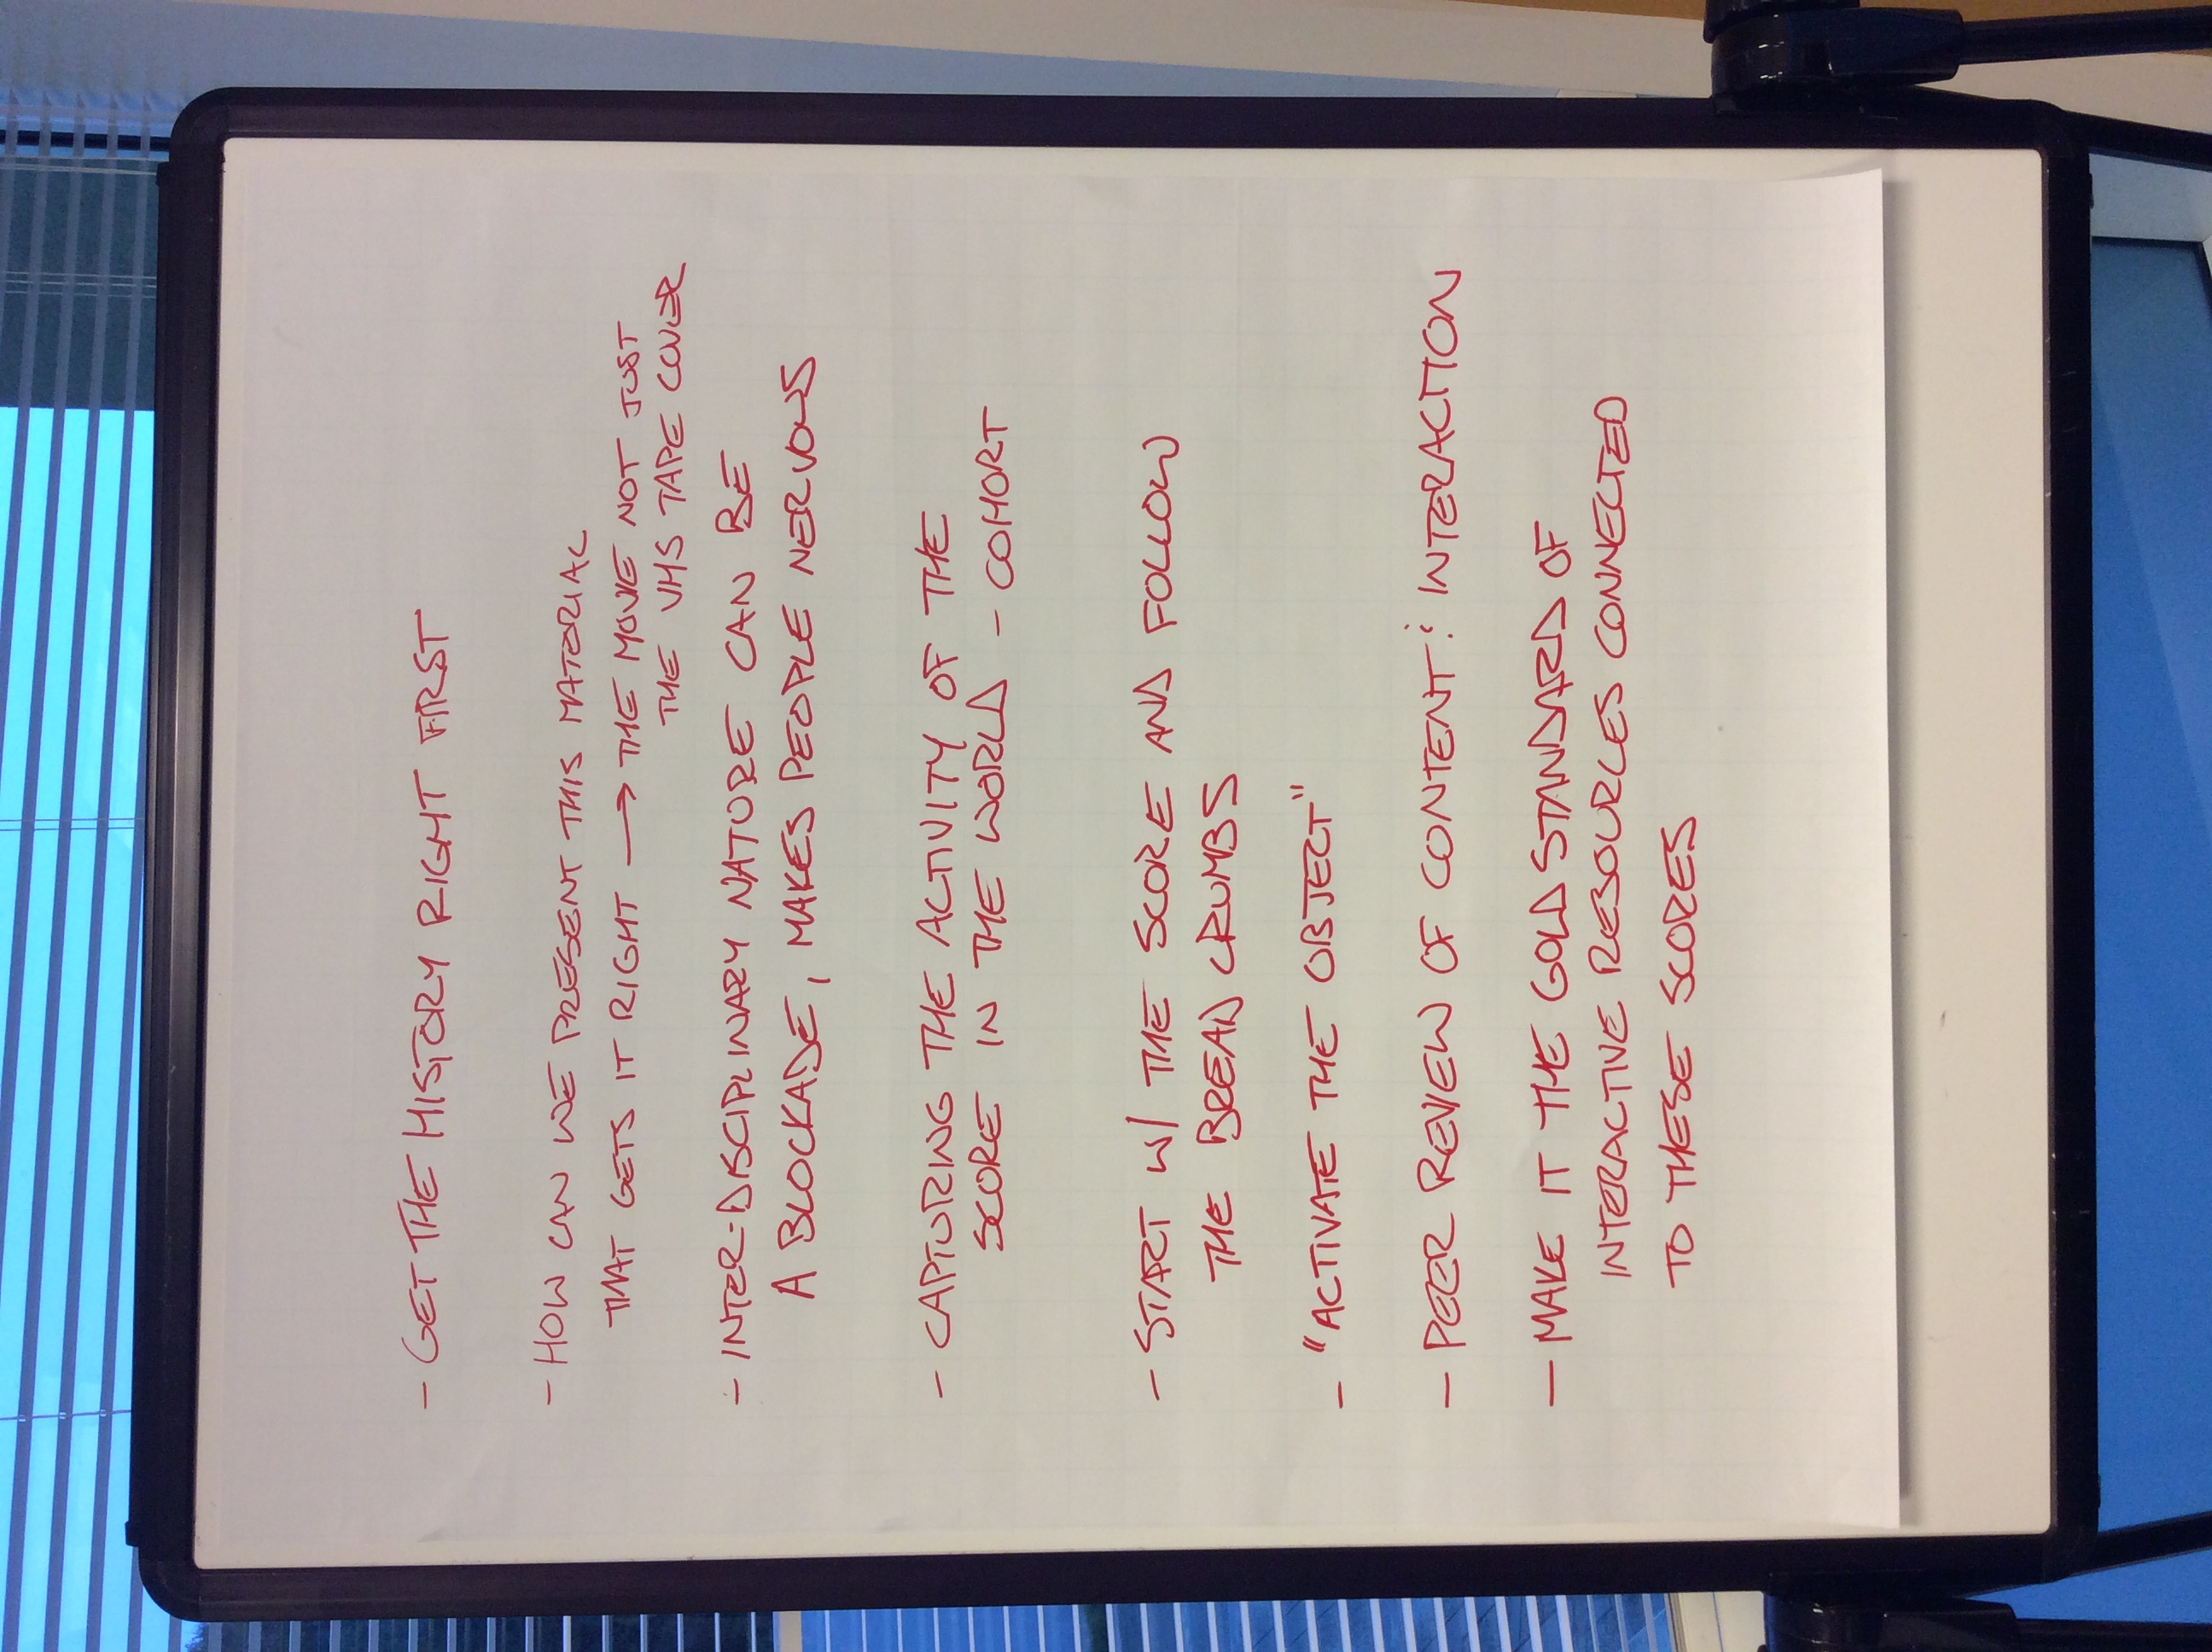 - GET THE HISTORY RIGHT FIRST
- HOW CAN WE PRESENT THIS MATERIAL
THAT GETS IT RIGHT → THE MOVIE NOT JUST
THE VHS TAPE COVER
- INTER-DISCIPLINARY NATURE CAN BE
A BLOCKADE, MAKES PEOPLE NERVOUS
- CAPTURING THE ACTIVITY OF THE
SCORE IN THE WORLD - COHORT
- START W/ THE SCORE AND FOLLOW
THE BREAD CRUMBS
- "ACTIVATE THE OBJECT"
- PEER REVIEW OF CONTENT & INTERACTION
- MAKE IT THE GOLD STANDARD OF
INTERACTIVE RESOURCES CONNECTED
TO THESE SCORES